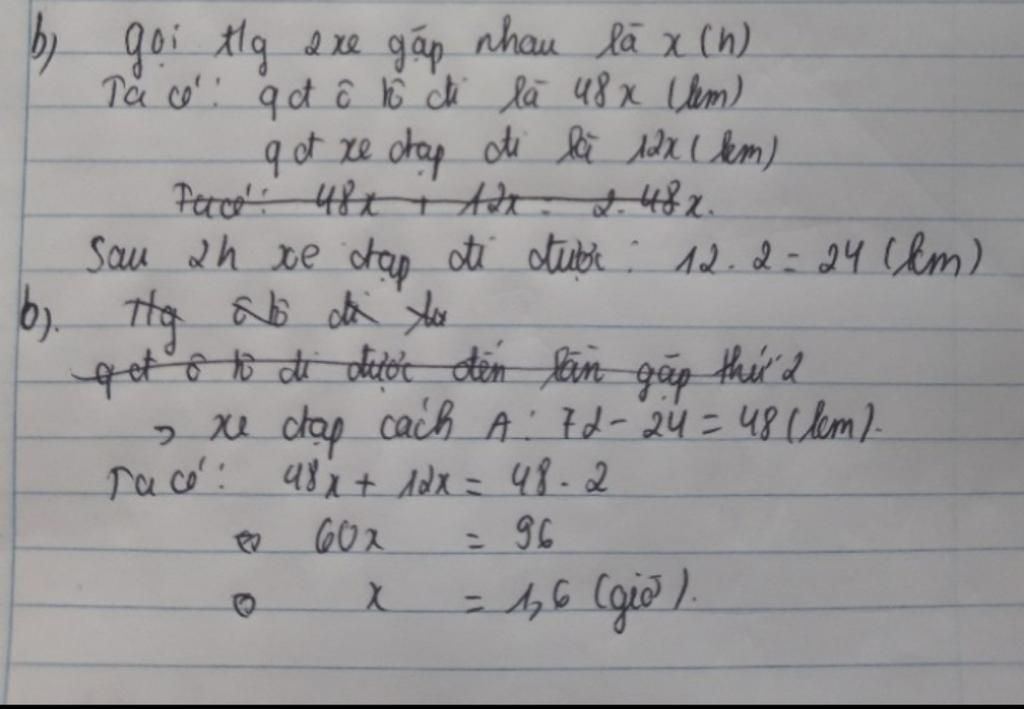 b) gọi tlg 2 xe gặp nhau là x (h)
Ta có: qđt ô tô đi là 48x (km)
qđt xe đạp đi là 12x (km)
Ta có: 48x + 12x = 2.48x.
Sau 2h xe đạp đi được: 12.2 = 24 (km)
b). tlg ô tô đi
qđt ô tô đi được đến lần gặp thứ 2
→ xe đạp cách A: 72 - 24 = 48 (km).
Ta có: 48x + 12x = 48.2
⇔ 60x = 96
⇔ x = 1,6 (giờ).